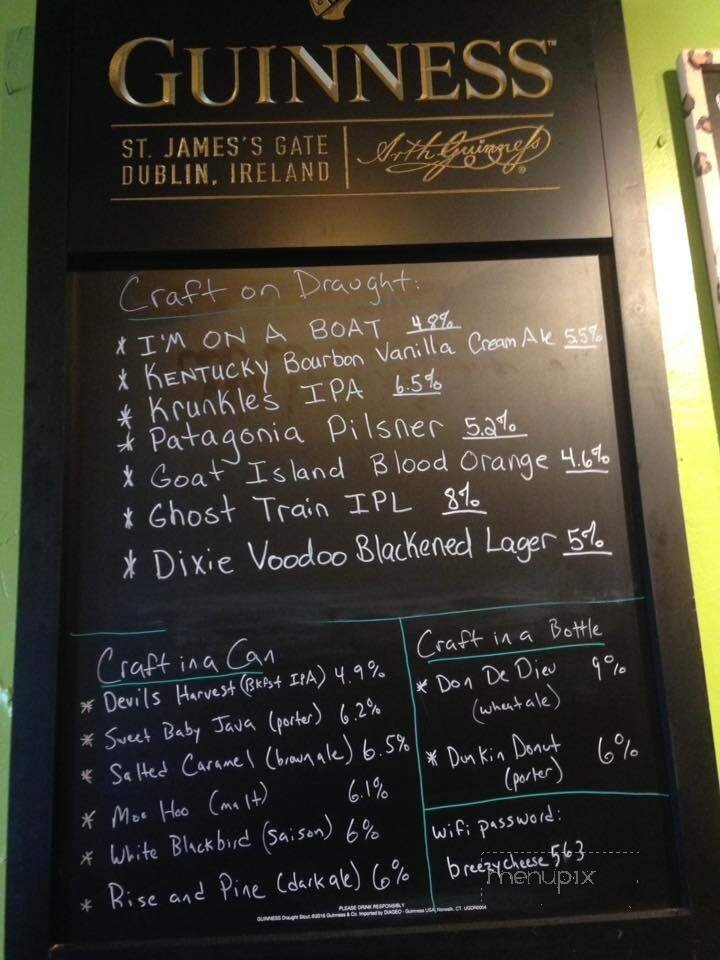 GUINNESS™
ST. JAMES'S GATE
DUBLIN, IRELAND
Arth Guinness®
Craft on Draught:
* I'M ON A BOAT 4.8%
* KENTUCKY Bourbon Vanilla Cream Ale 5.5%
* Krunkles IPA 6.5%
* Patagonia Pilsner 5.2%
* Goat Island Blood Orange 4.6%
* Ghost Train IPL 8%
* Dixie Voodoo Blackened Lager 5%
Craft in a Can
* Devils Harvest (Bkfst IPA) 4.9%
* Sweet Baby Java (porter) 6.2%
* Salted Caramel (brown ale) 6.5%
* Moo Hoo (malt) 6.1%
* White Blackbird (Saison) 6%
* Rise and Pine (dark ale) 6%
Craft in a Bottle
* Don De Dieu 9%
(wheat ale)
* Dunkin Donut 6%
(porter)
wifi password:
breezycheese563
menupix
PLEASE DRINK RESPONSIBLY
GUINNESS Draught Stout ©2016 Guinness & Co. Imported by DIAGEO - Guinness USA, Norwalk, CT